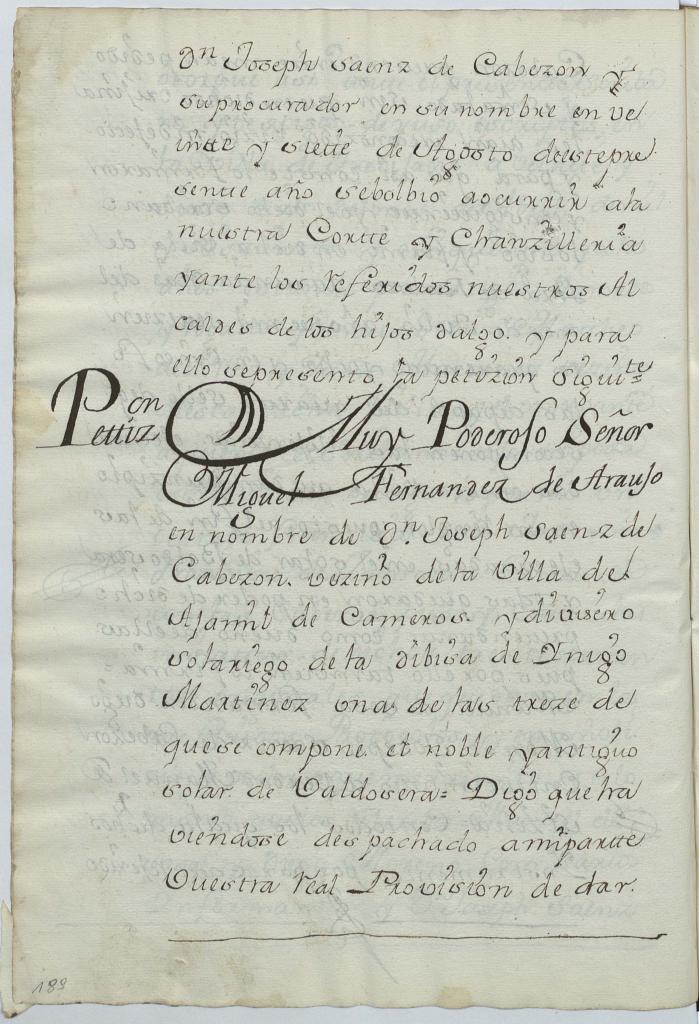 Dn Joseph saenz de Cabezon Y
suprocurador en su nombre en ve
intte y siette de Agosto deestepre
sentte año sebolbio aocurrir ala
nuestra Cortte y Chanzilleria
yante los referidos nuestros Al
caldes de los hijos dalgo. y para
ello sepresento la petizion siguite=
Pettizon
Muy Poderoso Señor
Miguel Fernandez de Araujo
en nombre de Dn. Joseph saenz de
Cabezon. vezino de la Villa de
Ajamil de Cameros. ydivisero
solariego de la dibisa de Ynigo
Martinez una de las treze de
quese compone el noble yantiguo
solar de Valdosera= Digo queha
viendose despachado amipartte
Vuestra real Provision de dar.
189